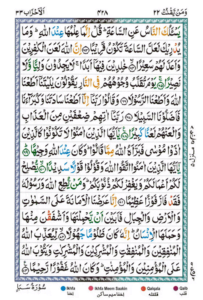 وَمَنْ يَّقْنُتْ ٢٢ ٤٢٨ اَلْاَحْزَاب ٣٣
يَسْـَٔلُكَ النَّاسُ عَنِ السَّاعَةِ ؕ قُلْ اِنَّمَا عِلْمُهَا عِنْدَ اللّٰهِ ؕ وَمَا
يُدْرِيْكَ لَعَلَّ السَّاعَةَ تَكُوْنُ قَرِيْبًا ۝ اِنَّ اللّٰهَ لَعَنَ الْكٰفِرِيْنَ
وَاَعَدَّ لَهُمْ سَعِيْرًا ۝ خٰلِدِيْنَ فِيْهَاۤ اَبَدًا ۚ لَا يَجِدُوْنَ وَلِيًّا وَّلَا
نَصِيْرًا ۝ يَوْمَ تُقَلَّبُ وُجُوْهُهُمْ فِي النَّارِ يَقُوْلُوْنَ يٰلَيْتَنَاۤ
اَطَعْنَا اللّٰهَ وَاَطَعْنَا الرَّسُوْلَا ۝ وَقَالُوْا رَبَّنَاۤ اِنَّاۤ اَطَعْنَا سَادَتَنَا وَكُبَرَآءَنَا
فَاَضَلُّوْنَا السَّبِيْلَا ۝ رَبَّنَاۤ اٰتِهِمْ ضِعْفَيْنِ مِنَ الْعَذَابِ
وَالْعَنْهُمْ لَعْنًا كَبِيْرًا ۝ يٰۤاَيُّهَا الَّذِيْنَ اٰمَنُوْا لَا تَكُوْنُوْا كَالَّذِيْنَ
اٰذَوْا مُوْسٰى فَبَرَّاَهُ اللّٰهُ مِمَّا قَالُوْا ؕ وَكَانَ عِنْدَ اللّٰهِ وَجِيْهًا ۝
يٰۤاَيُّهَا الَّذِيْنَ اٰمَنُوا اتَّقُوا اللّٰهَ وَقُوْلُوْا قَوْلًا سَدِيْدًا ۝ يُّصْلِحْ
لَكُمْ اَعْمَالَكُمْ وَيَغْفِرْ لَكُمْ ذُنُوْبَكُمْ ؕ وَمَنْ يُّطِعِ اللّٰهَ وَرَسُوْلَهٗ
فَقَدْ فَازَ فَوْزًا عَظِيْمًا ۝ اِنَّا عَرَضْنَا الْاَمَانَةَ عَلَى السَّمٰوٰتِ
وَالْاَرْضِ وَالْجِبَالِ فَاَبَيْنَ اَنْ يَّحْمِلْنَهَا وَاَشْفَقْنَ مِنْهَا
وَحَمَلَهَا الْاِنْسَانُ ؕ اِنَّهٗ كَانَ ظَلُوْمًا جَهُوْلًا ۝ لِّيُعَذِّبَ اللّٰهُ
الْمُنٰفِقِيْنَ وَالْمُنٰفِقٰتِ وَالْمُشْرِكِيْنَ وَالْمُشْرِكٰتِ وَيَتُوْبَ اللّٰهُ
عَلَى الْمُؤْمِنِيْنَ وَالْمُؤْمِنٰتِ ؕ وَكَانَ اللّٰهُ غَفُوْرًا رَّحِيْمًا ۝